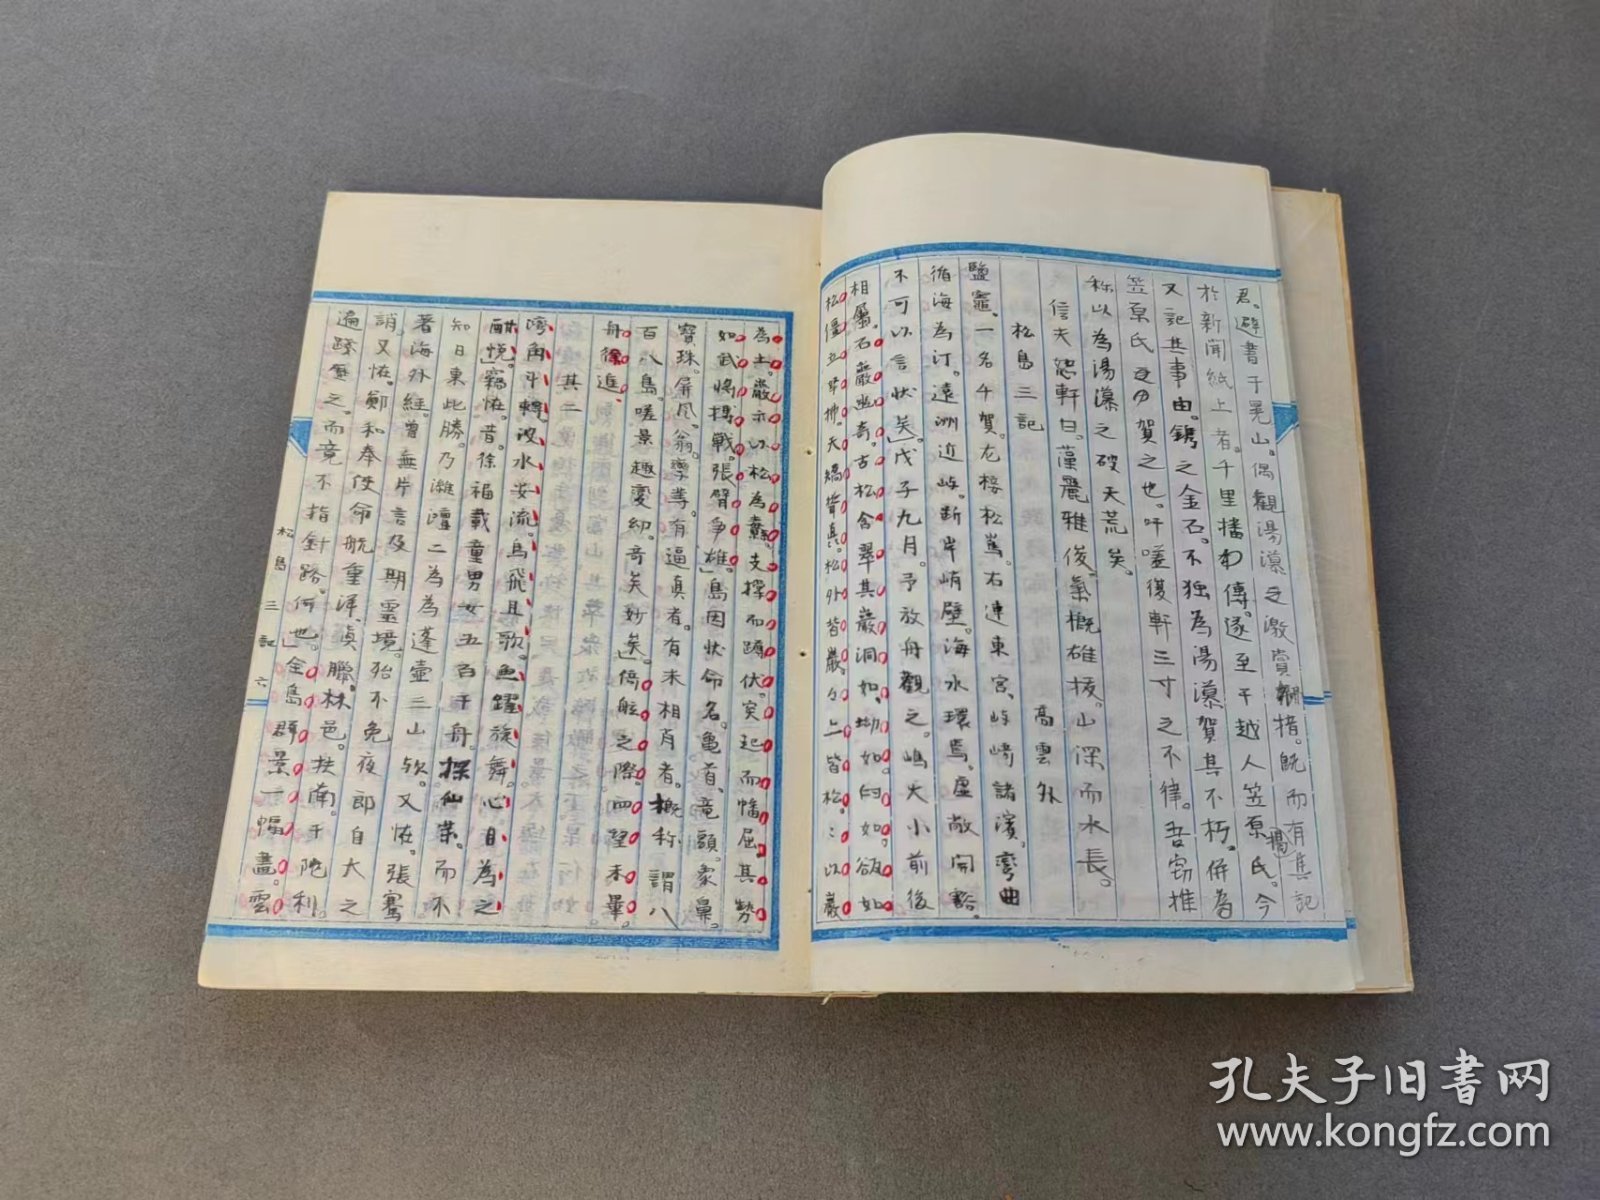 君。避書于晃山。偶觀湯瀑之激賞觀措。既而有其記
於新聞紙上者。千里播布傳。遂至于越人笠原氏。今
又記其事由。鐫之金石。不独為湯瀑賀其不朽。併為
笠原氏之力賀之也。吁嗟復軒三寸之不律。吾窃推
称以為湯瀑之破天荒矣。
信夫恕軒曰。藻麗雅俊。氣概雄拔。山深而水長。
松島三記　高雲外
鹽竈。一名千賀。左接松嶌。右連東宮。崎諸濱。彎曲
循海為汀。遠洲近屿。断岸峭壁。海水環焉。虛敞開豁。
不可以言状矣。戊子九月。予放舟觀之。嶋大小前後
相屬。石巖幽奇。古松含翠。其巖洞如㘭如臼如。如
松僵立。天矯。松外皆巖。々上皆松。以巖
為土。巖亦以松為蠹。支撑而蹲伏。突起而幡屈。其勢
如武將搆戰。張臂爭雄。島因状命名。亀首。竜頭。象鼻。
寶珠。屏风。翁。等。有逼真者。有未相肖者。概称謂八
百八島。嗟景趣変幼。奇矣妙矣。倚舷之際。四望未畢。
舟徐進。
其二
湾角斗轉。波水安流。鳥飛且歌。魚躍旋舞。心目為之
酣悦。竊怪。昔徐福載童男女五百于舟。探仙葉。而不
知日東此勝。乃濰壇二為為蓬壷三山欤。又怪。張騫
著海外經。曾無片言及期靈境。殆不免夜郎自大之
誚。又怪。鄭和奉使命航重洋。真臘。林邑。扶南。于陀利。
遍蹊歷之。而竟不指針路。何也。全島群景一幅畫。雲
松島三記　六
孔夫子旧书网
www.kongfz.com